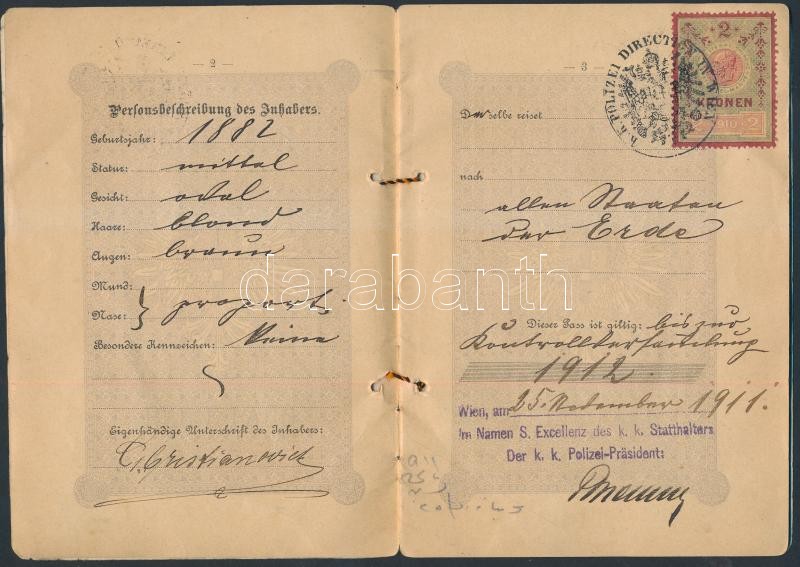 — 2 —
Personsbeschreibung des Inhabers.
Geburtsjahr: 1882
Statur: mittel
Gesicht: oval
Haare: blond
Augen: braun
Mund:
Nase: } proport.
Besondere Kennzeichen: keine
Eigenhändige Unterschrift des Inhabers:
Cristianovich
— 3 —
K. K. POLIZEI DIRECTION IN WIEN
2
KRONEN
1910 2
Derselbe reiset
nach
allen Staaten
der Erde
Dieser Pass ist giltig: bis zur
1912.
Wien, am 25. November 1911.
Im Namen S. Excellenz des k. k. Statthalters
Der k. k. Polizei-Präsident:
darabanth